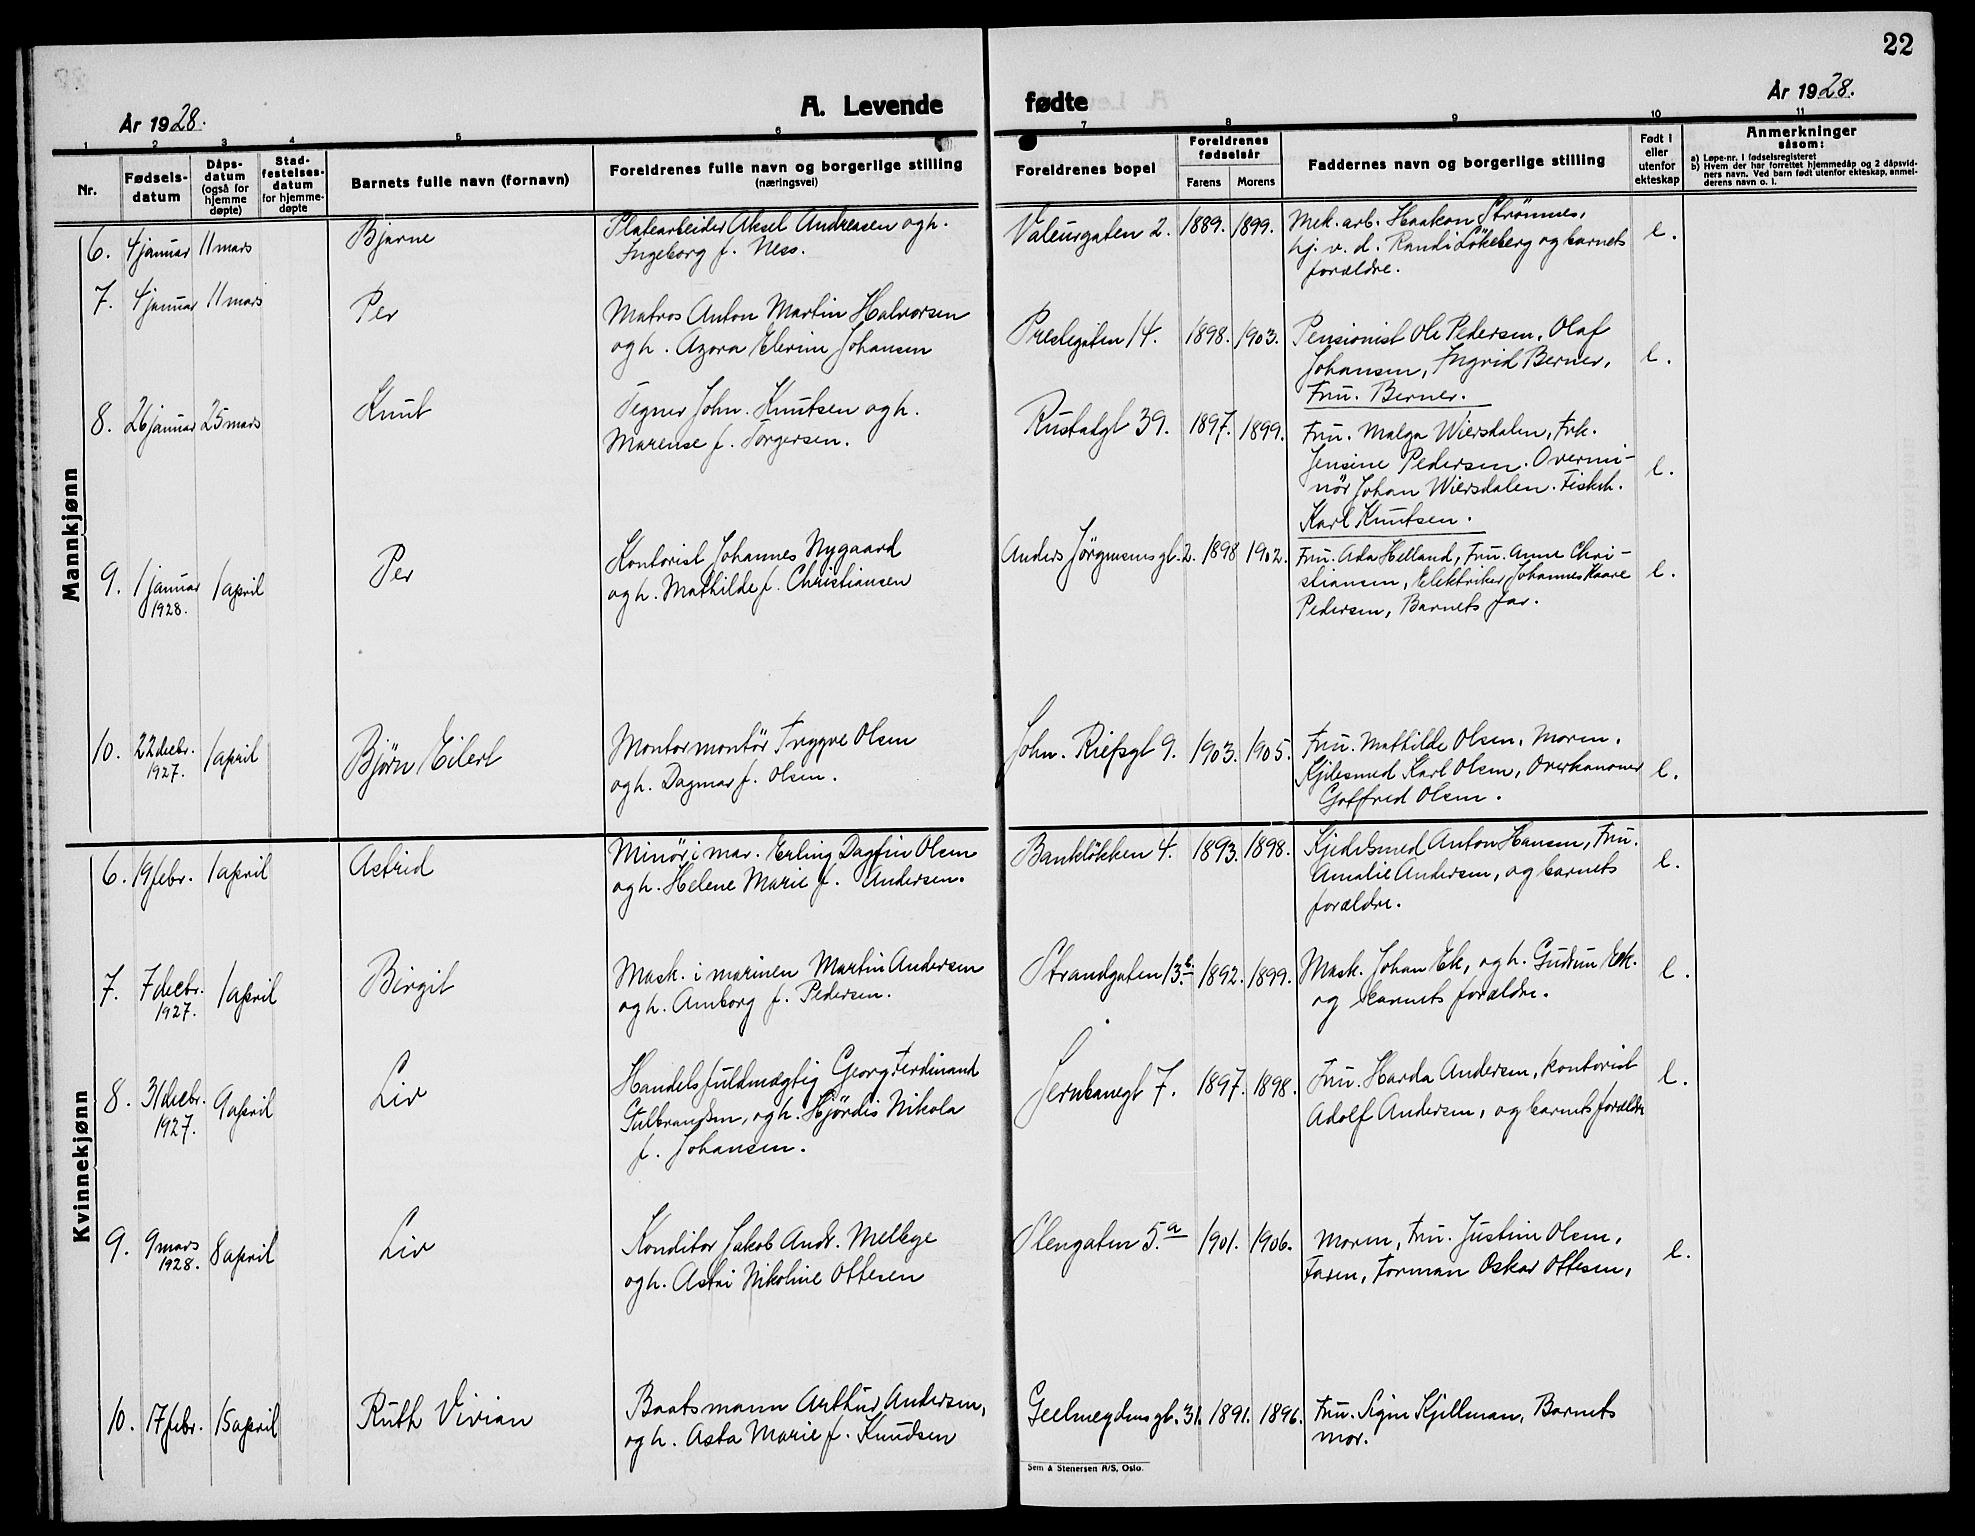 22
År 1928.
A. Levende fødte
År 1928.
1 2 3 4 5 6 7 8 9 10 11
Nr.
Fødsels-
datum
Dåps-
datum
(også for
hjemme
døpte)
Stad-
festelses-
datum
for hjemme-
døpte
Barnets fulle navn (fornavn)
Foreldrenes fulle navn og borgerlige stilling
(næringsvei)
Foreldrenes bopel
Foreldrenes
fødselsår
Farens Morens
Faddernes navn og borgerlige stilling
Født i
eller
utenfor
ekteskap
Anmerkninger
såsom:
a) Løpe-nr. i fødselsregisteret
b) Hvem der har forrettet hjemmedåp og 2 dåpsvid-
ners navn. Ved barn født utenfor ekteskap, anmel-
derens navn o. l.
Mannkjønn
6. 4 januar 11 mars Bjarne
Platearbeider Aksel Andreasen og h.
Ingeborg f. Ness.
Valeurgaten 2. 1889. 1899.
Mek. arb. Haakon Strömnes,
hj. v. d. Randi Lökeberg og barnets
forældre.
e.
7. 4 januar 11 mars Per
Matros Anton Martin Halvorsen
og h. Azora Elerine Johansen
Prestegaten 14. 1898. 1903.
Pensionist Ole Pedersen, Olaf
Johansen, Ingrid Berner,
Fru. Berner.
e.
8. 26 januar 25 mars Knut
Tegner John. Knutsen og h.
Marense f. Torgersen.
Rustadgt 39. 1897. 1899.
Fru. Malga Wiersdalen, Frk.
Jensine Pedersen. Overmi-
nör Johan Wiersdalen. Fiskeh.
Karl Knutsen.
e.
9. 1 januar 1 april Per
1928.
Kontorist Johannes Nygaard
og h. Mathilde f. Christiansen
Anders Jörgensensgt. 2. 1898 1902.
Fru. Ada Helland, Fru. Anne Chri-
stiansen, Elektriker Johannes Kaare
Pedersen, Barnets far.
e.
10. 22 decbr. 1 april Björn Eilert
1927.
Montormontör Trygve Olsen
og h. Dagmar f. Olsen.
John. Riefsgt 9. 1903. 1905.
Fru. Mathilde Olsen, Moren,
Kjelesmed Karl Olsen, Overkanoner
Gotfred Olsen.
e.
Kvinnekjønn
6. 19 febr. 1 april Astrid
Minör i mar. Erling Dagfin Olsen
og h. Helene Marie f. Andersen.
Banklökken 4. 1893. 1898.
Kjedelsmed Anton Hansen, Fru.
Amalie Andersen, og barnets
forældre.
e.
7. 7 decbr. 1 april Birgit
1927.
Mask. i marinen Martin Andersen
og h. Amborg f. Pedersen.
Strandgaten 13 b. 1892. 1899.
Mask. Johan Ek, og h. Gudrun Ek.
og barnets forældre.
e.
8. 31 decbr. 9 april Liv
1927.
Handelsfuldmægtig Georg Ferdinand
Gulbrandsen, og h. Hjördis Nikola
f. Johansen.
Jernbanegt 7. 1897. 1898.
Fru. Harda Andersen, kontorist
Adolf Andersen, og barnets forældre
e.
9. 9 mars 8 april Liv
1928.
Konditor Jakob Andr. Melbye
og h. Astri Nikoline Ottesen
Olengaten 5. a 1901. 1906.
Moren, Fru. Justine Olsen,
Faren, Forman Oskar Ottesen,
e.
10. 17 febr. 15 april Ruth Vivian
Baatsmann Arthur Andersen,
og h. Asta Marie f. Knudsen
Geelmeydensgt. 31. 1891. 1896.
Fru. Signe Kjellman, Barnets
mor.
Sem & Stenersen A/S, Oslo.